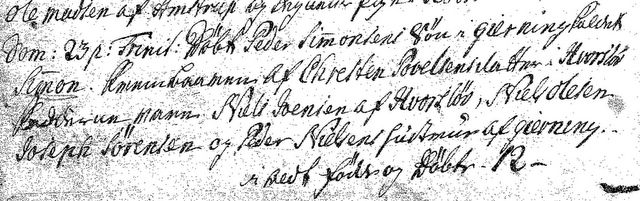 Ole Madsen af Amstrup og
Dom: 23 p: Trinit: Døbt Peder Simonsens Søn i Gierning kaldet
Simon. baaren af Chresten Povelsens datter i Hvorsløv
Niels Jensen af Hvorsløv, Niels Olesen
Joseph Sørensen og Peder Nielsens hustrue af Gierning.
født og Døbt